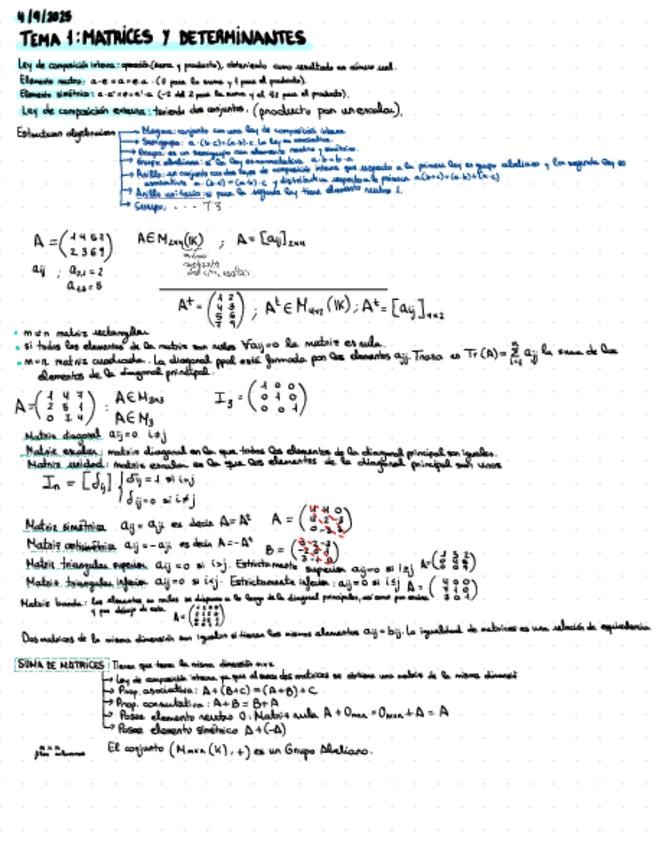 4/9/2025
TEMA 1: MATRICES Y DETERMINANTES
Ley de composición interna: operación (suma y producto), obteniendo como resultado un número real.
Elemento neutro: a·e=a=e·a (0 para la suma y 1 para el producto).
Elemento simétrico: a·a'=e=a'·a (-2 del 2 para la suma y el 1/2 para el producto).
Ley de composición externa: teniendo dos conjuntos. (producto por un escalar).
Estructuras algebraicas
Magma: conjunto con una ley de composición interna
Semigrupo: a·(b·c)=(a·b)·c. La ley es asociativa.
Grupo: es un semigrupo con elemento neutro y simétrico.
Grupo abeliano: si la ley es conmutativa a·b=b·a
Anillo: un conjunto con dos leyes de composición interna que respecto a la primera ley es grupo abeliano y la segunda ley es
asociativa a·(b·c)=(a·b)·c y distributiva respecto a la primera a(b+c)=(a·b)+(a·c)
Anillo unitario: si para la segunda ley tiene elemento neutro 1.
A = (1 4 5 7
2 3 6 9) A∈M2x4(IK) ; A=[aij]2x4
aij ; a2,1=2
a1,3=5
At = (1 2
4 3
5 6
7 9) ; At∈M4x2(IK); At=[aij]4x2
m≠n matriz rectangular
si todos los elementos de la matriz son nulos ∀aij=0 la matriz es nula.
m=n matriz cuadrada. La diagonal ppal está formada por los elementos ajj. Traza es Tr(A)=∑ ajj la suma de los
elementos de la diagonal principal.
A = (1 4 7
2 5 1
0 3 4) : A∈M3x3 I3 = (1 0 0
0 1 0
0 0 1)
A∈M3
Matriz diagonal aij=0 i≠j
Matriz escalar: matriz diagonal en la que todos los elementos de la diagonal principal son iguales.
Matriz unidad: matriz escalar en la que los elementos de la diagonal principal son unos
In = [δij] { δij=1 si i=j
δij=0 si i≠j
Matriz simétrica aij=aji es decir A=At A =
Matriz antisimétrica aij=-aji es decir A=-At B =
Matriz triangular superior aij=0 si i>j. Estrictamente superior aij=0 si i≥j A=
Matriz triangular inferior aij=0 si i<j. Estrictamente inferior: aij=0 si i≤j A=
Matriz banda: los elementos no nulos se disponen a lo largo de la diagonal principal, así como por encima
y por debajo de esta. A=
Dos matrices de la misma dimensión son iguales si tienen los mismos elementos aij=bij. La igualdad de matrices es una relación de equivalencia
SUMA DE MATRICES: Tienen que tener la misma dimensión mxn
Ley de composición interna ya que al sumar dos matrices se obtiene una matriz de la misma dimensión
Prop. asociativa: A+(B+C)=(A+B)+C
Prop. conmutativa: A+B=B+A
Posee elemento neutro 0. Matriz nula A+0mxn=0mxn+A=A
Posee elemento simétrico A+(-A)
El conjunto (Mmxn(K),+) es un Grupo Abeliano.